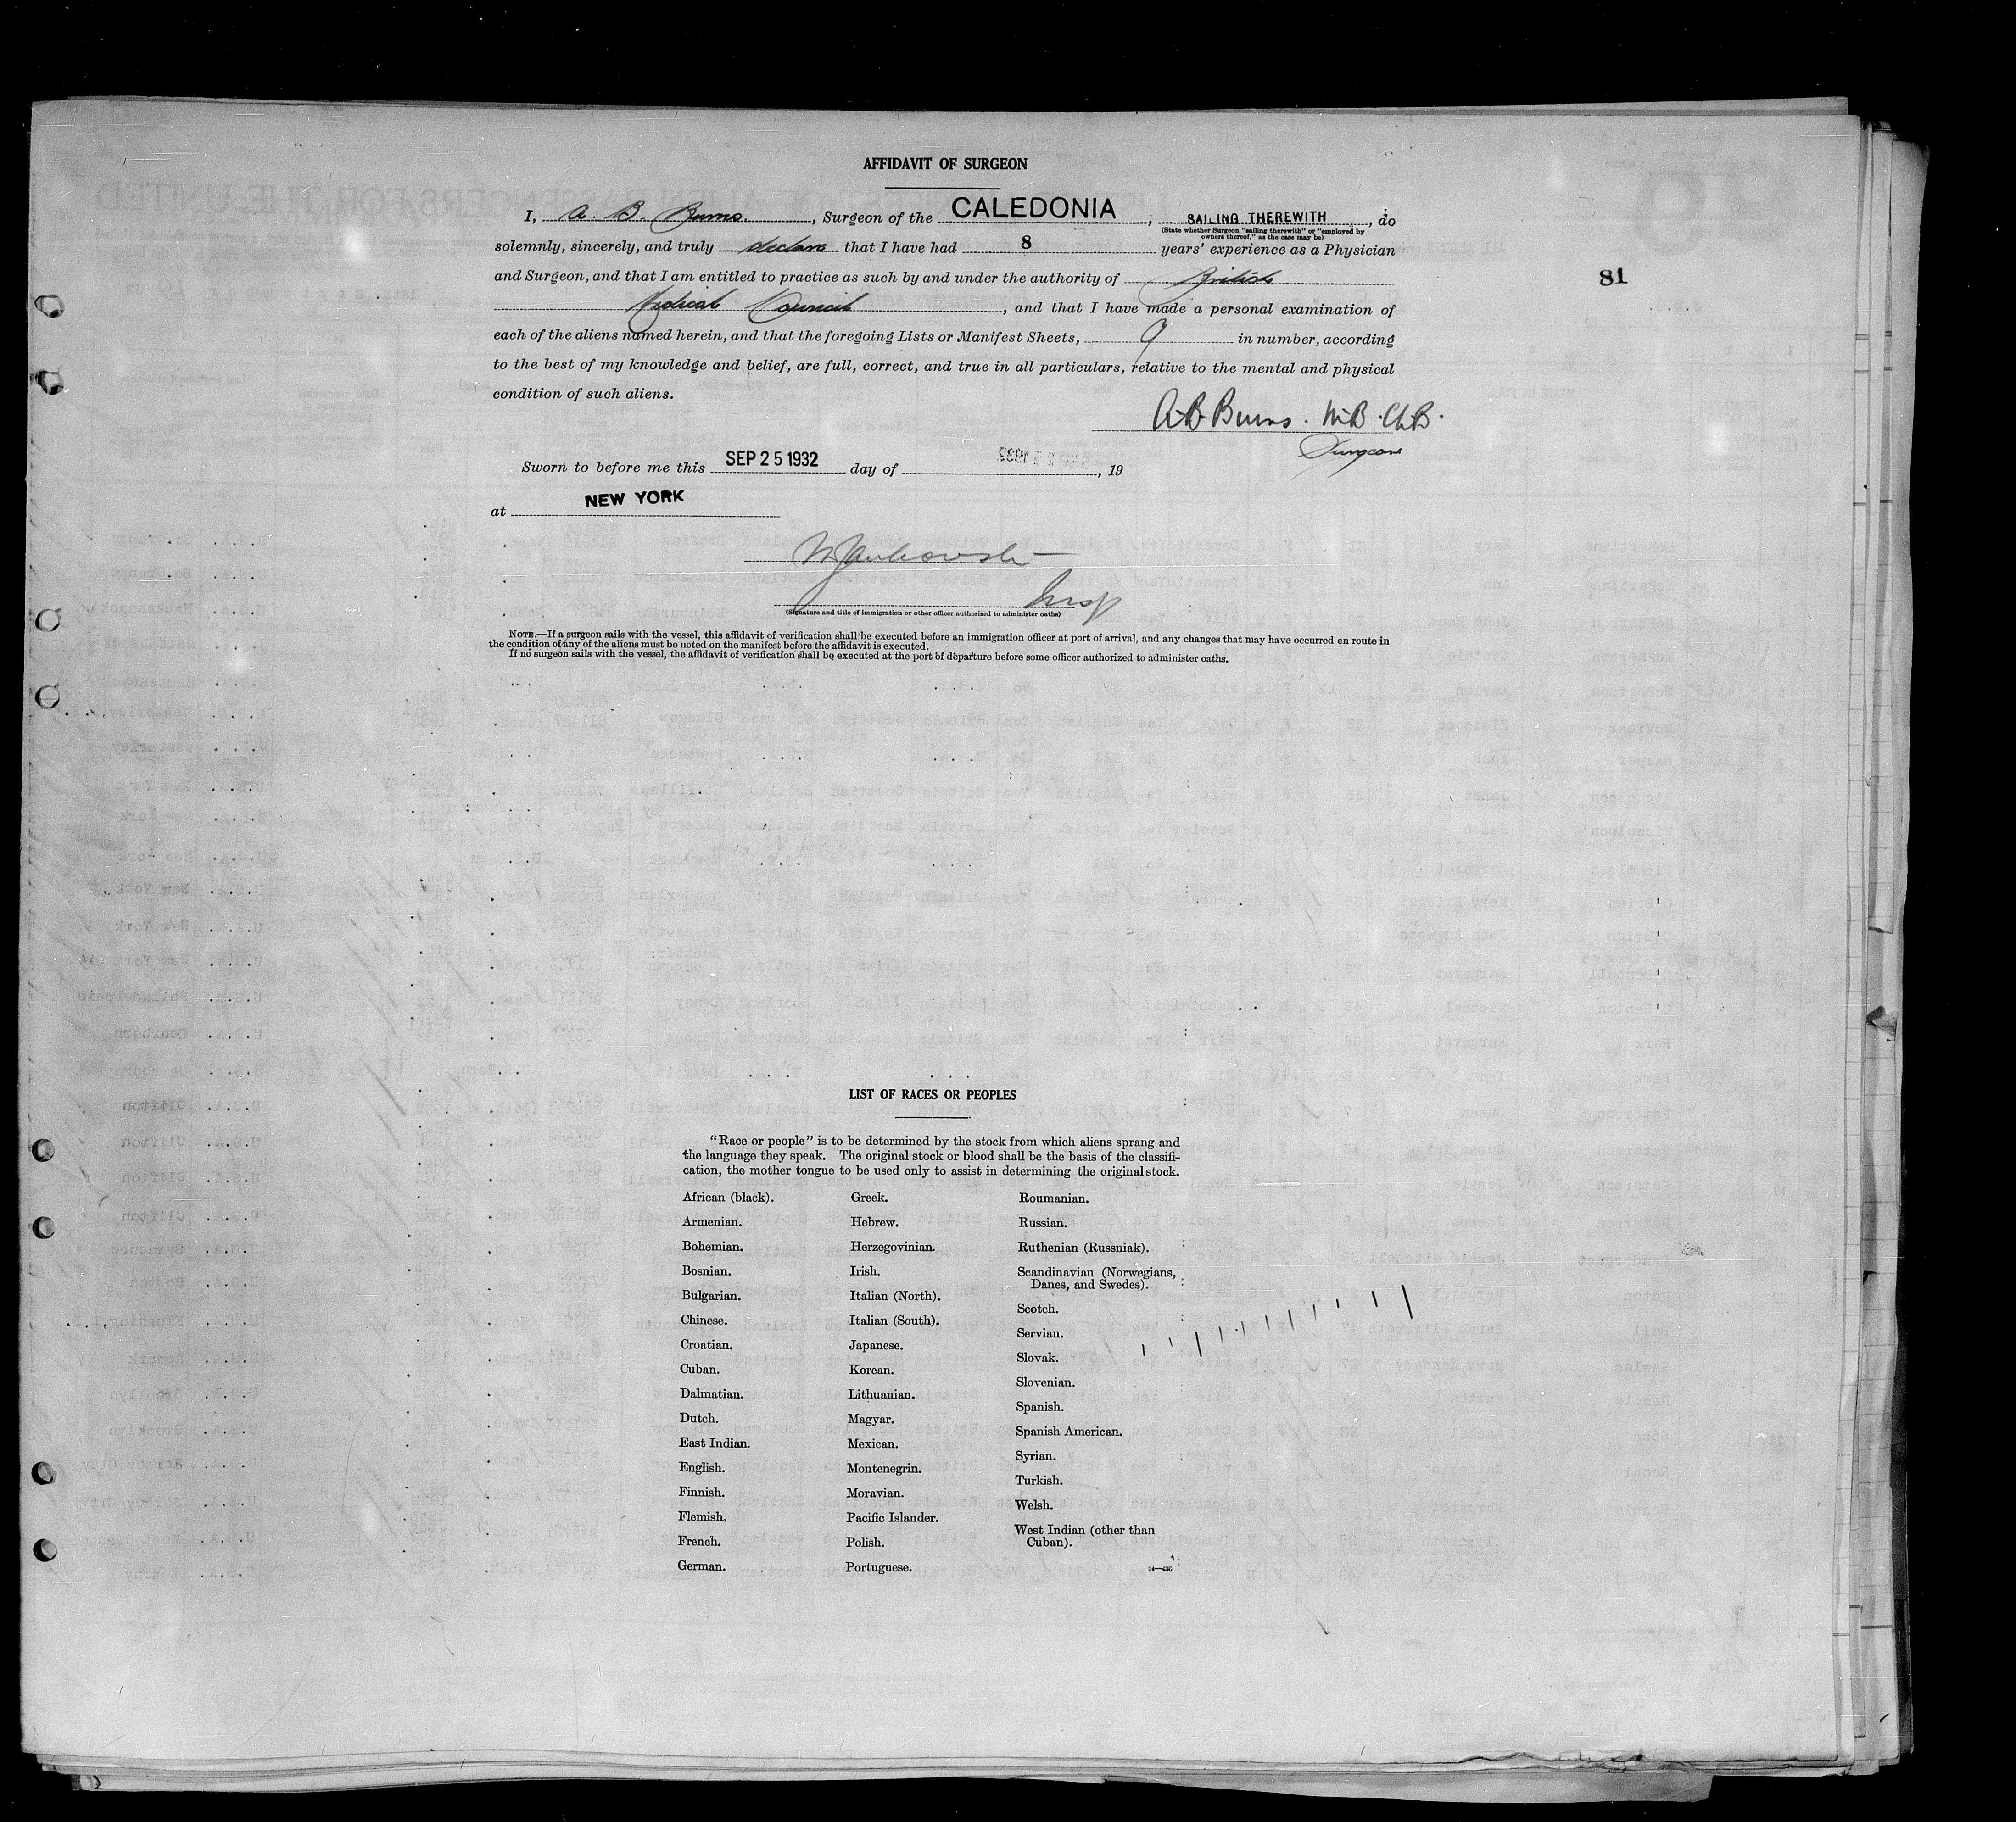 AFFIDAVIT OF SURGEON
I, A. B. Burns, Surgeon of the CALEDONIA, SAILING THEREWITH, do
(State whether Surgeon "sailing therewith" or "employed by
owners thereof," as the case may be)
solemnly, sincerely, and truly declare that I have had 8 years' experience as a Physician
and Surgeon, and that I am entitled to practice as such by and under the authority of British
Medical Council, and that I have made a personal examination of
81
each of the aliens named herein, and that the foregoing Lists or Manifest Sheets, 9 in number, according
to the best of my knowledge and belief, are full, correct, and true in all particulars, relative to the mental and physical
condition of such aliens.
A B Burns. M.B. Ch.B.
Surgeon
Sworn to before me this SEP 25 1932 day of , 19
at NEW YORK
Insp
(Signature and title of immigration or other officer authorized to administer oaths)
NOTE.—If a surgeon sails with the vessel, this affidavit of verification shall be executed before an immigration officer at port of arrival, and any changes that may have occurred en route in
the condition of any of the aliens must be noted on the manifest before the affidavit is executed.
If no surgeon sails with the vessel, the affidavit of verification shall be executed at the port of departure before some officer authorized to administer oaths.
LIST OF RACES OR PEOPLES
"Race or people" is to be determined by the stock from which aliens sprang and
the language they speak. The original stock or blood shall be the basis of the classifi-
cation, the mother tongue to be used only to assist in determining the original stock.
African (black).
Armenian.
Bohemian.
Bosnian.
Bulgarian.
Chinese.
Croatian.
Cuban.
Dalmatian.
Dutch.
East Indian.
English.
Finnish.
Flemish.
French.
German.
Greek.
Hebrew.
Herzegovinian.
Irish.
Italian (North).
Italian (South).
Japanese.
Korean.
Lithuanian.
Magyar.
Mexican.
Montenegrin.
Moravian.
Pacific Islander.
Polish.
Portuguese.
Roumanian.
Russian.
Ruthenian (Russniak).
Scandinavian (Norwegians,
Danes, and Swedes).
Scotch.
Servian.
Slovak.
Slovenian.
Spanish.
Spanish American.
Syrian.
Turkish.
Welsh.
West Indian (other than
Cuban).